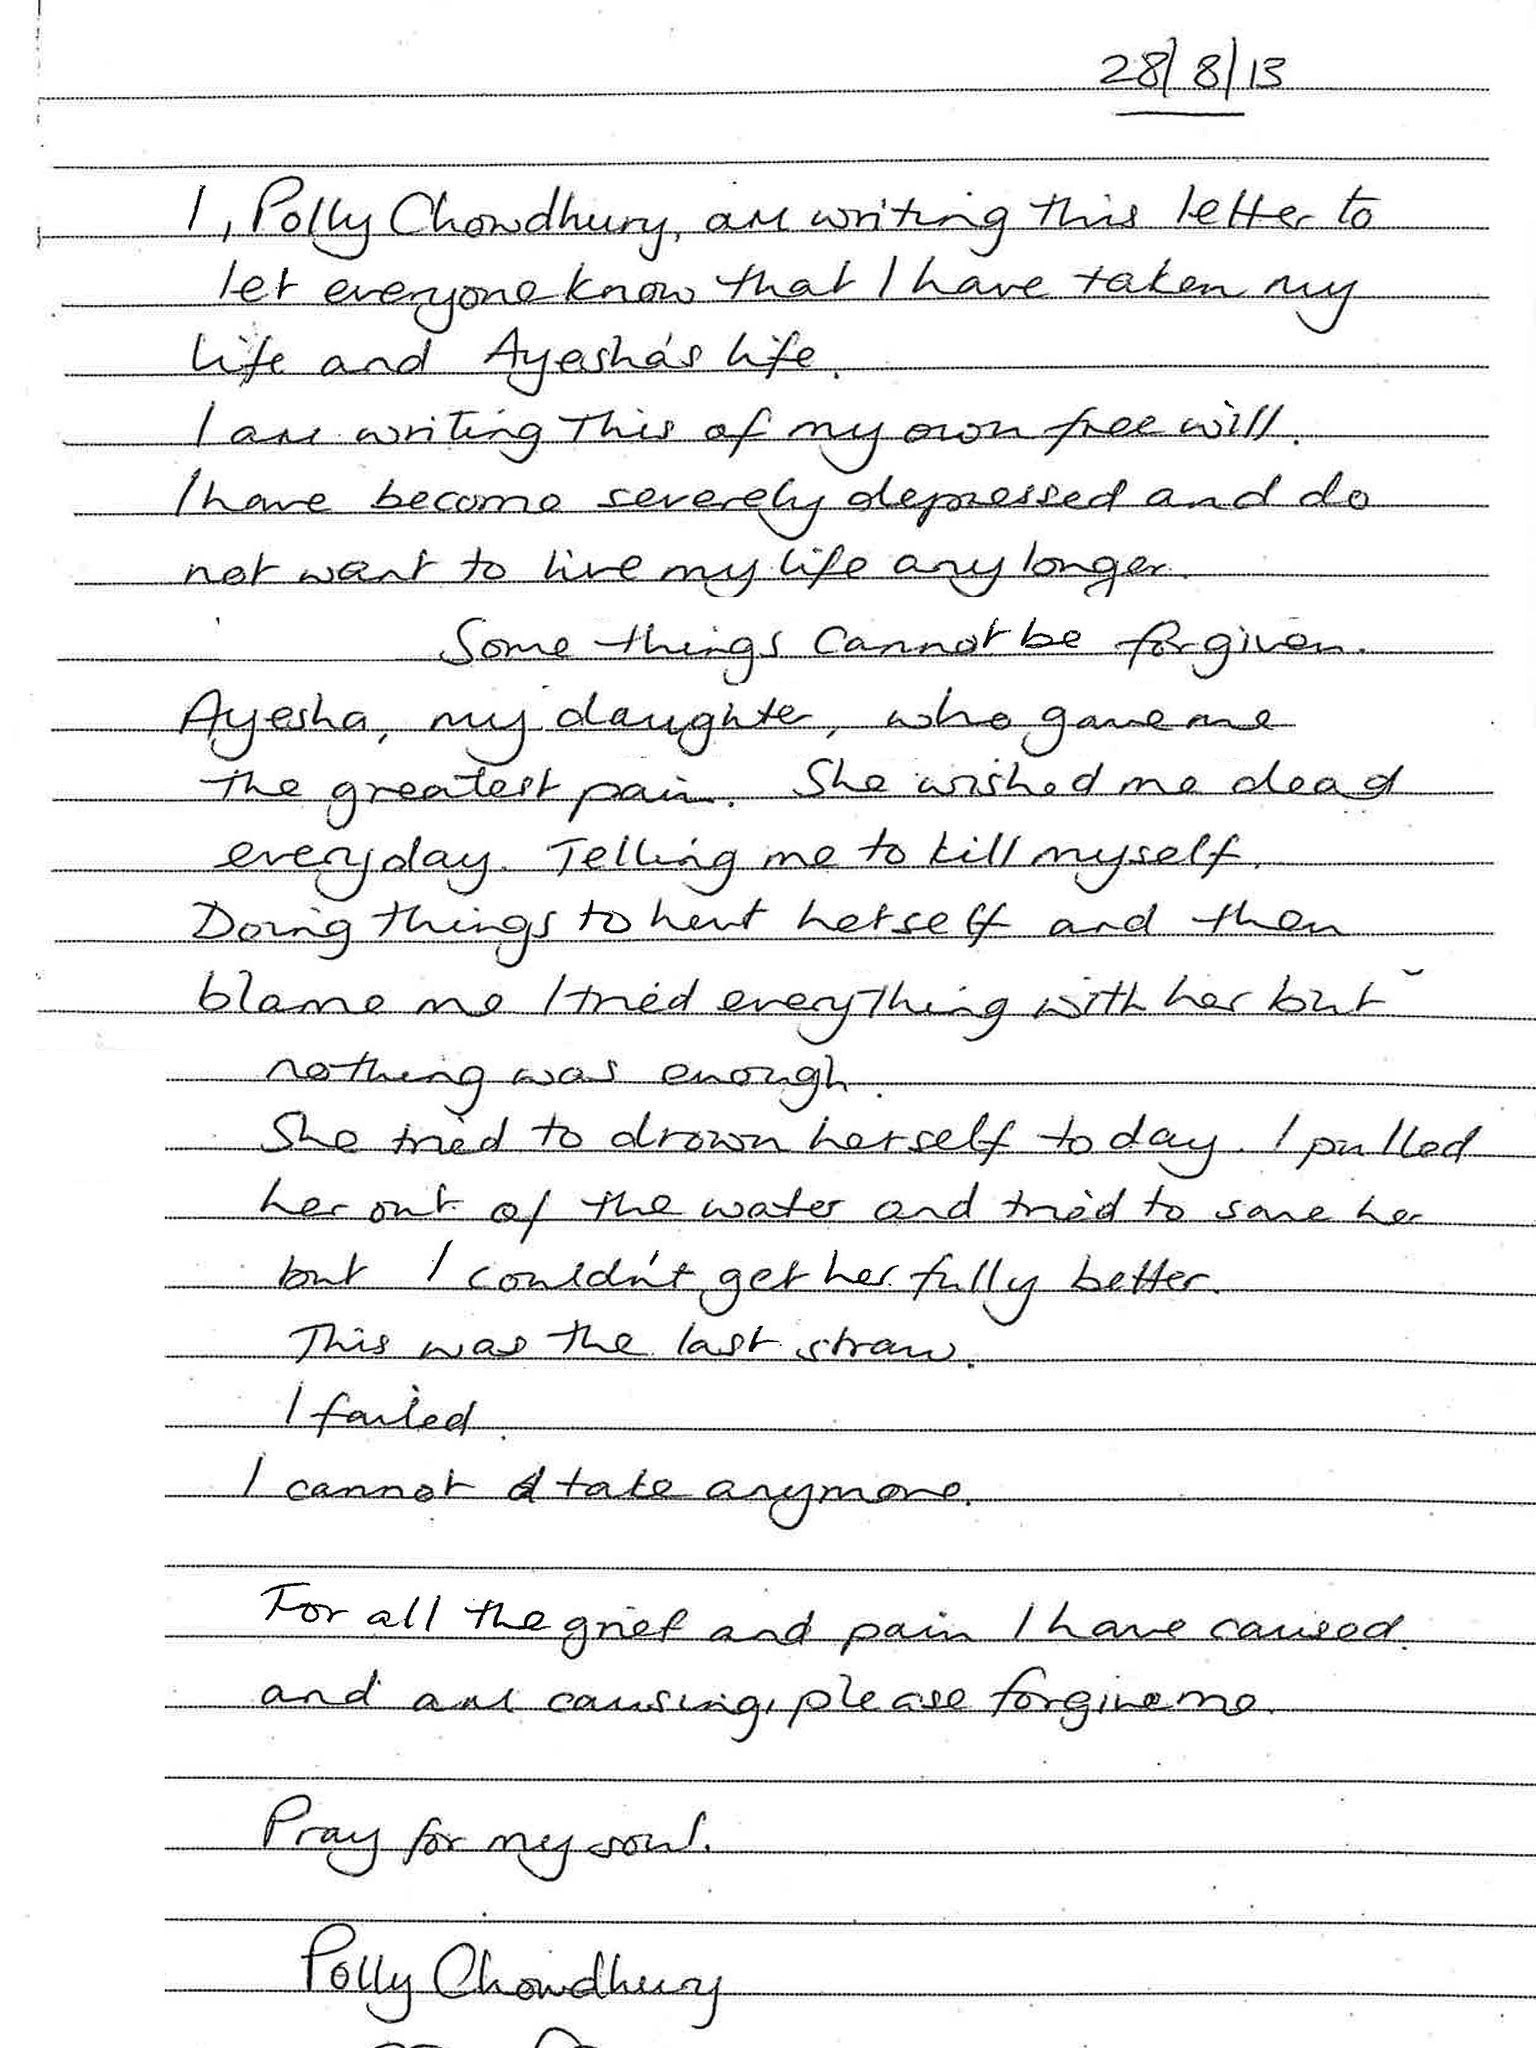 28/8/13
I, Polly Chowdhury, am writing this letter to
let everyone know that I have taken my
life and Ayesha's life.
I am writing this of my own free will.
I have become severely depressed and do
not want to live my life any longer.
Some things cannot be forgiven.
Ayesha, my daughter, who gave me
the greatest pain. She wished me dead
everyday. Telling me to kill myself.
Doing things to hurt herself and then
blame me I tried everything with her but
nothing was enough.
She tried to drown herself today. I pulled
her out of the water and tried to save her
but I couldn't get her fully better.
This was the last straw.
I failed.
I cannot take anymore.
For all the grief and pain I have caused
and am causing, please forgive me.
Pray for my soul.
Polly Chowdhury